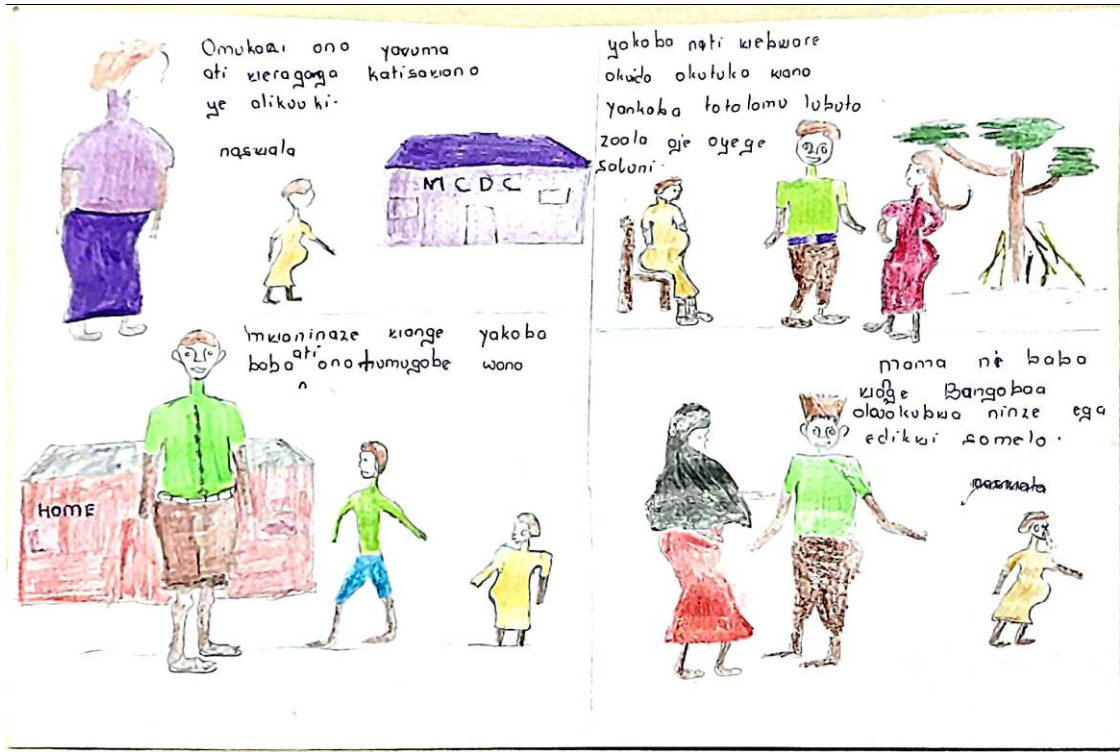 Omukazi ono yavuma
ati kieragaga katisakiono
ye alikuuki.
naswala
MCDC
yakoba nati kiebwore
okuido okutuka kiano
yankoba totolomu lubuto
zoola oje oyege
saluni.
mwaninaze kiange yakoba
baba ati ono tumugobe wano
HOME
mama ni baba
kiange Bangobaa
olwokubwa ninze ega
edikwi somelo.